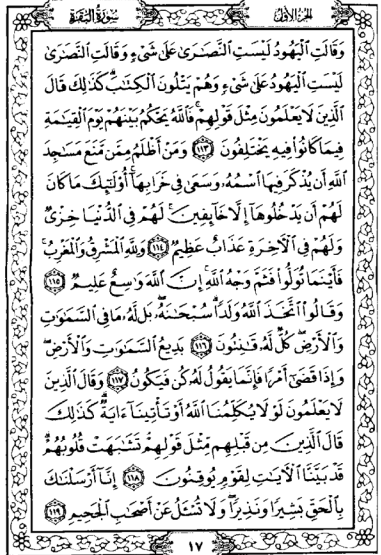 الجزء الأول
سورة البقرة
وَقَالَتِ الْيَهُودُ لَيْسَتِ النَّصَارَىٰ عَلَىٰ شَيْءٍ وَقَالَتِ النَّصَارَىٰ
لَيْسَتِ الْيَهُودُ عَلَىٰ شَيْءٍ وَهُمْ يَتْلُونَ الْكِتَابَ ۗ كَذَٰلِكَ قَالَ
الَّذِينَ لَا يَعْلَمُونَ مِثْلَ قَوْلِهِمْ ۚ فَاللَّهُ يَحْكُمُ بَيْنَهُمْ يَوْمَ الْقِيَامَةِ
فِيمَا كَانُوا فِيهِ يَخْتَلِفُونَ ١١٣ وَمَنْ أَظْلَمُ مِمَّن مَّنَعَ مَسَاجِدَ
اللَّهِ أَن يُذْكَرَ فِيهَا اسْمُهُ وَسَعَىٰ فِي خَرَابِهَا ۚ أُولَٰئِكَ مَا كَانَ
لَهُمْ أَن يَدْخُلُوهَا إِلَّا خَائِفِينَ ۚ لَهُمْ فِي الدُّنْيَا خِزْيٌ
وَلَهُمْ فِي الْآخِرَةِ عَذَابٌ عَظِيمٌ ١١٤ وَلِلَّهِ الْمَشْرِقُ وَالْمَغْرِبُ ۚ
فَأَيْنَمَا تُوَلُّوا فَثَمَّ وَجْهُ اللَّهِ ۚ إِنَّ اللَّهَ وَاسِعٌ عَلِيمٌ ١١٥
وَقَالُوا اتَّخَذَ اللَّهُ وَلَدًا ۗ سُبْحَانَهُ ۖ بَل لَّهُ مَا فِي السَّمَاوَاتِ
وَالْأَرْضِ ۖ كُلٌّ لَّهُ قَانِتُونَ ١١٦ بَدِيعُ السَّمَاوَاتِ وَالْأَرْضِ ۖ
وَإِذَا قَضَىٰ أَمْرًا فَإِنَّمَا يَقُولُ لَهُ كُن فَيَكُونُ ١١٧ وَقَالَ الَّذِينَ
لَا يَعْلَمُونَ لَوْلَا يُكَلِّمُنَا اللَّهُ أَوْ تَأْتِينَا آيَةٌ ۗ كَذَٰلِكَ
قَالَ الَّذِينَ مِن قَبْلِهِم مِّثْلَ قَوْلِهِمْ ۘ تَشَابَهَتْ قُلُوبُهُمْ ۗ
قَدْ بَيَّنَّا الْآيَاتِ لِقَوْمٍ يُوقِنُونَ ١١٨ إِنَّا أَرْسَلْنَاكَ
بِالْحَقِّ بَشِيرًا وَنَذِيرًا ۖ وَلَا تُسْأَلُ عَنْ أَصْحَابِ الْجَحِيمِ ١١٩
١٧